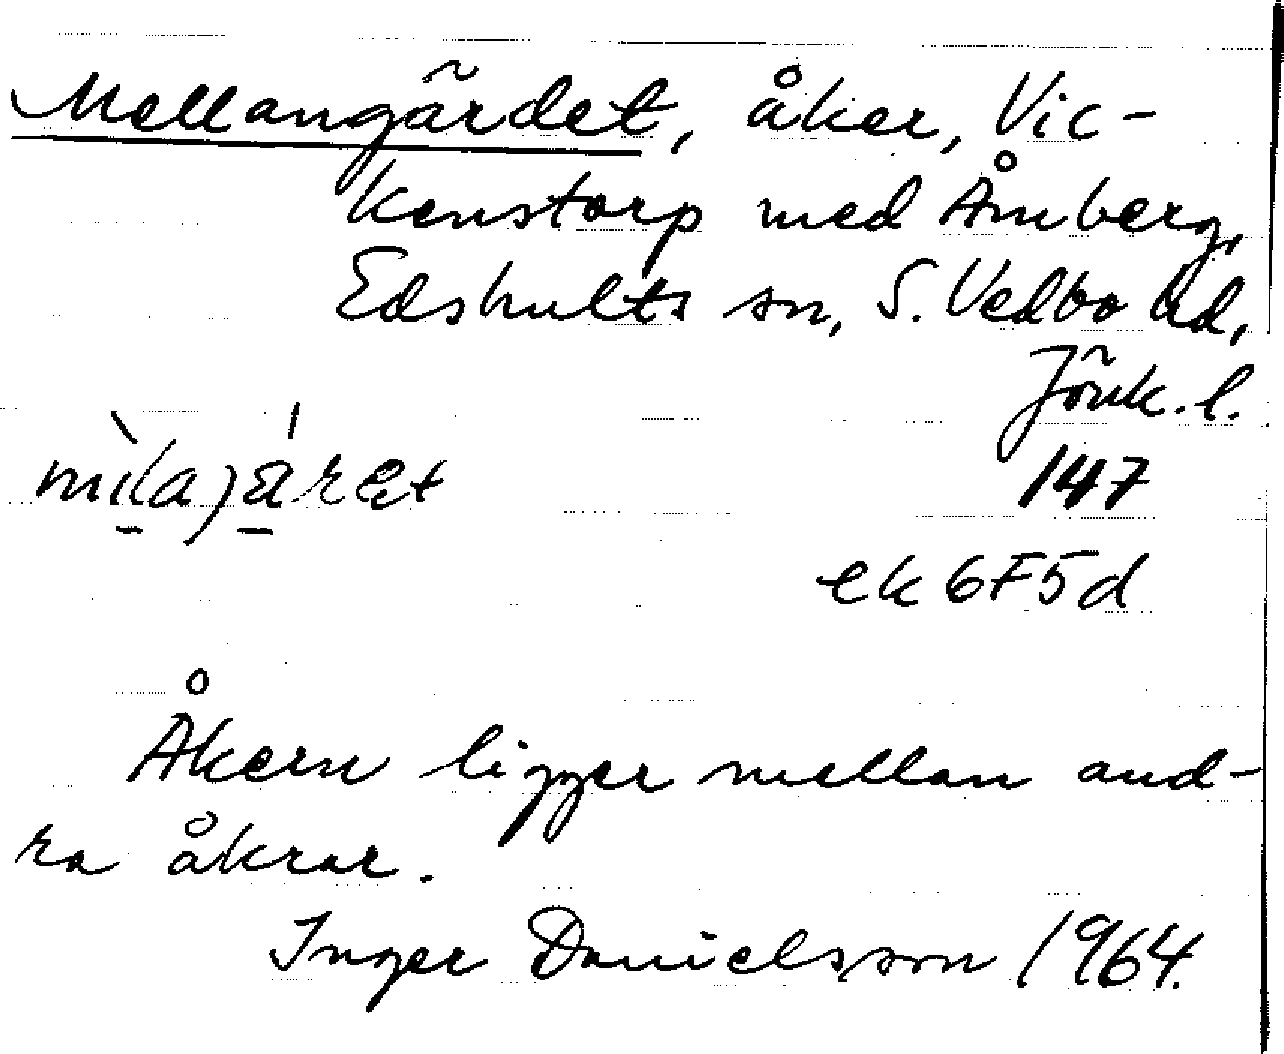 Mellangärdet, åker, Vic-
kenstorp med Åmberg,
Edshults sn, S. Vedbo hd,
Jönk. l.
147
ek 6F5d
Åkern ligger mellan and-
ra åkrar.
Inger Danielsson 1964.